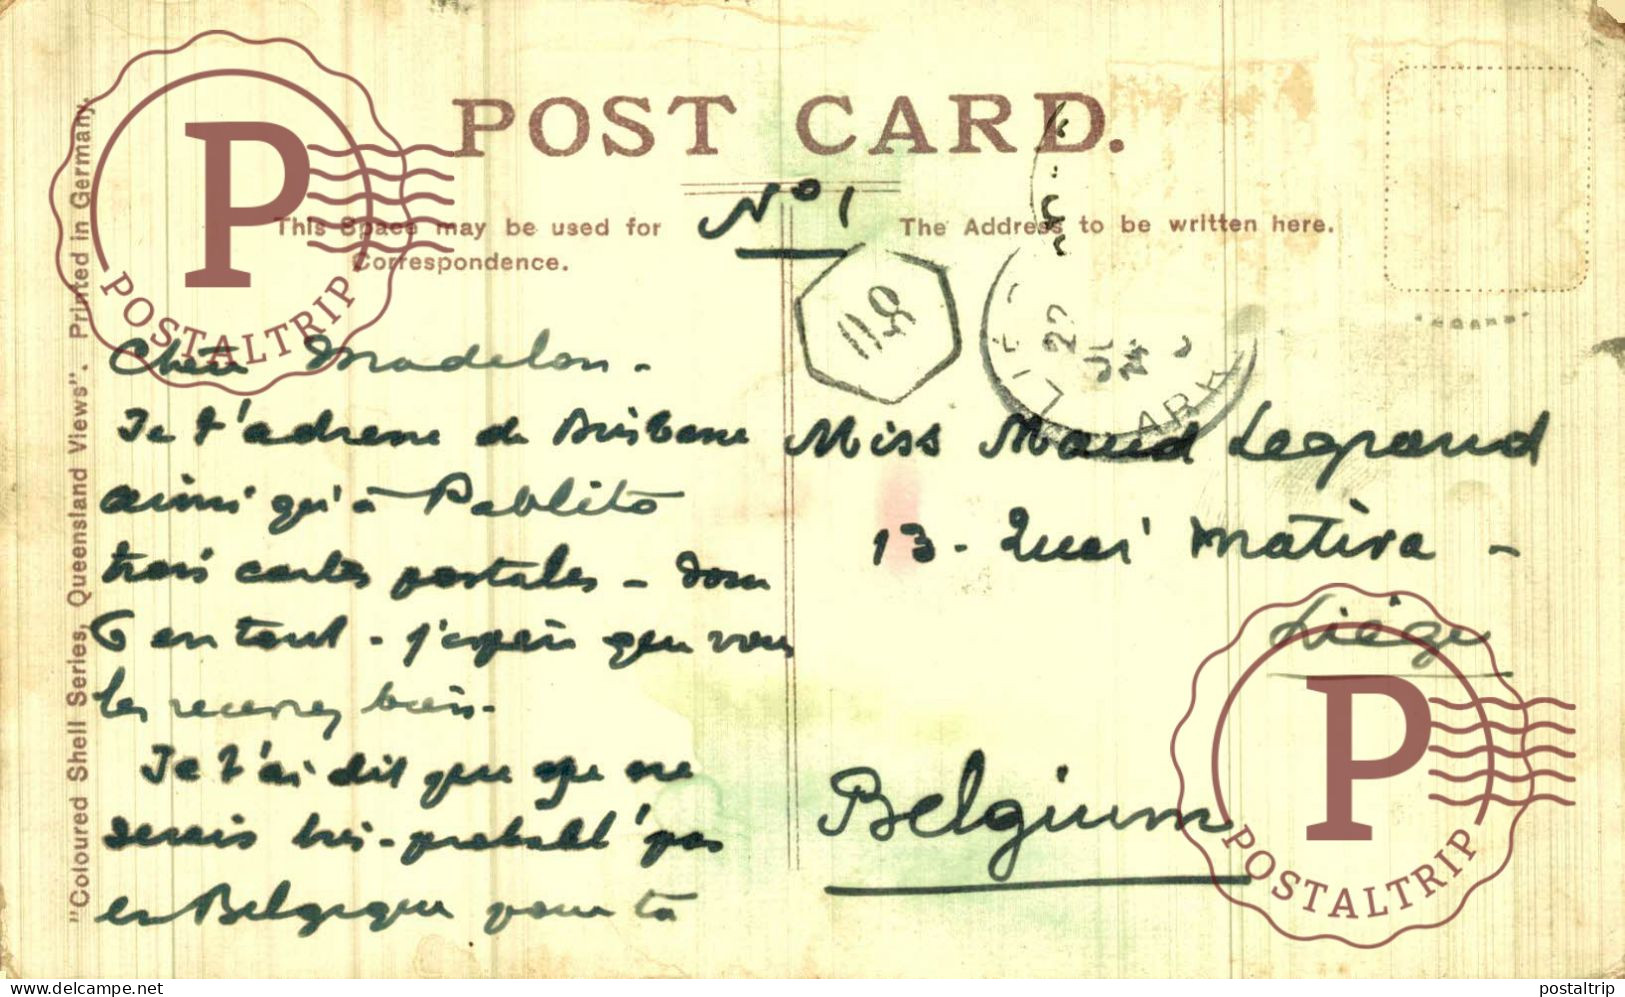 POST CARD.
N° 1
This Space may be used for
Correspondence.
The Address to be written here.
"Coloured Shell Series, Queensland Views". Printed in Germany.
P
POSTALTRIP
Madelon -
Je t'adresse de Brisbane
ainsi qu'à Pablito
trois cartes postales -
6 en tout - j'espère que vous
les recevrez bien -
Je t'ai dit que je ne
serais très-probabl^t pas
en Belgique pour ta
LIÉ
22
JL
Miss Maud Legrand
13 - Quai Mativa -
Liège
Belgium
P
POSTALTRIP
www.delcampe.net
postaltrip